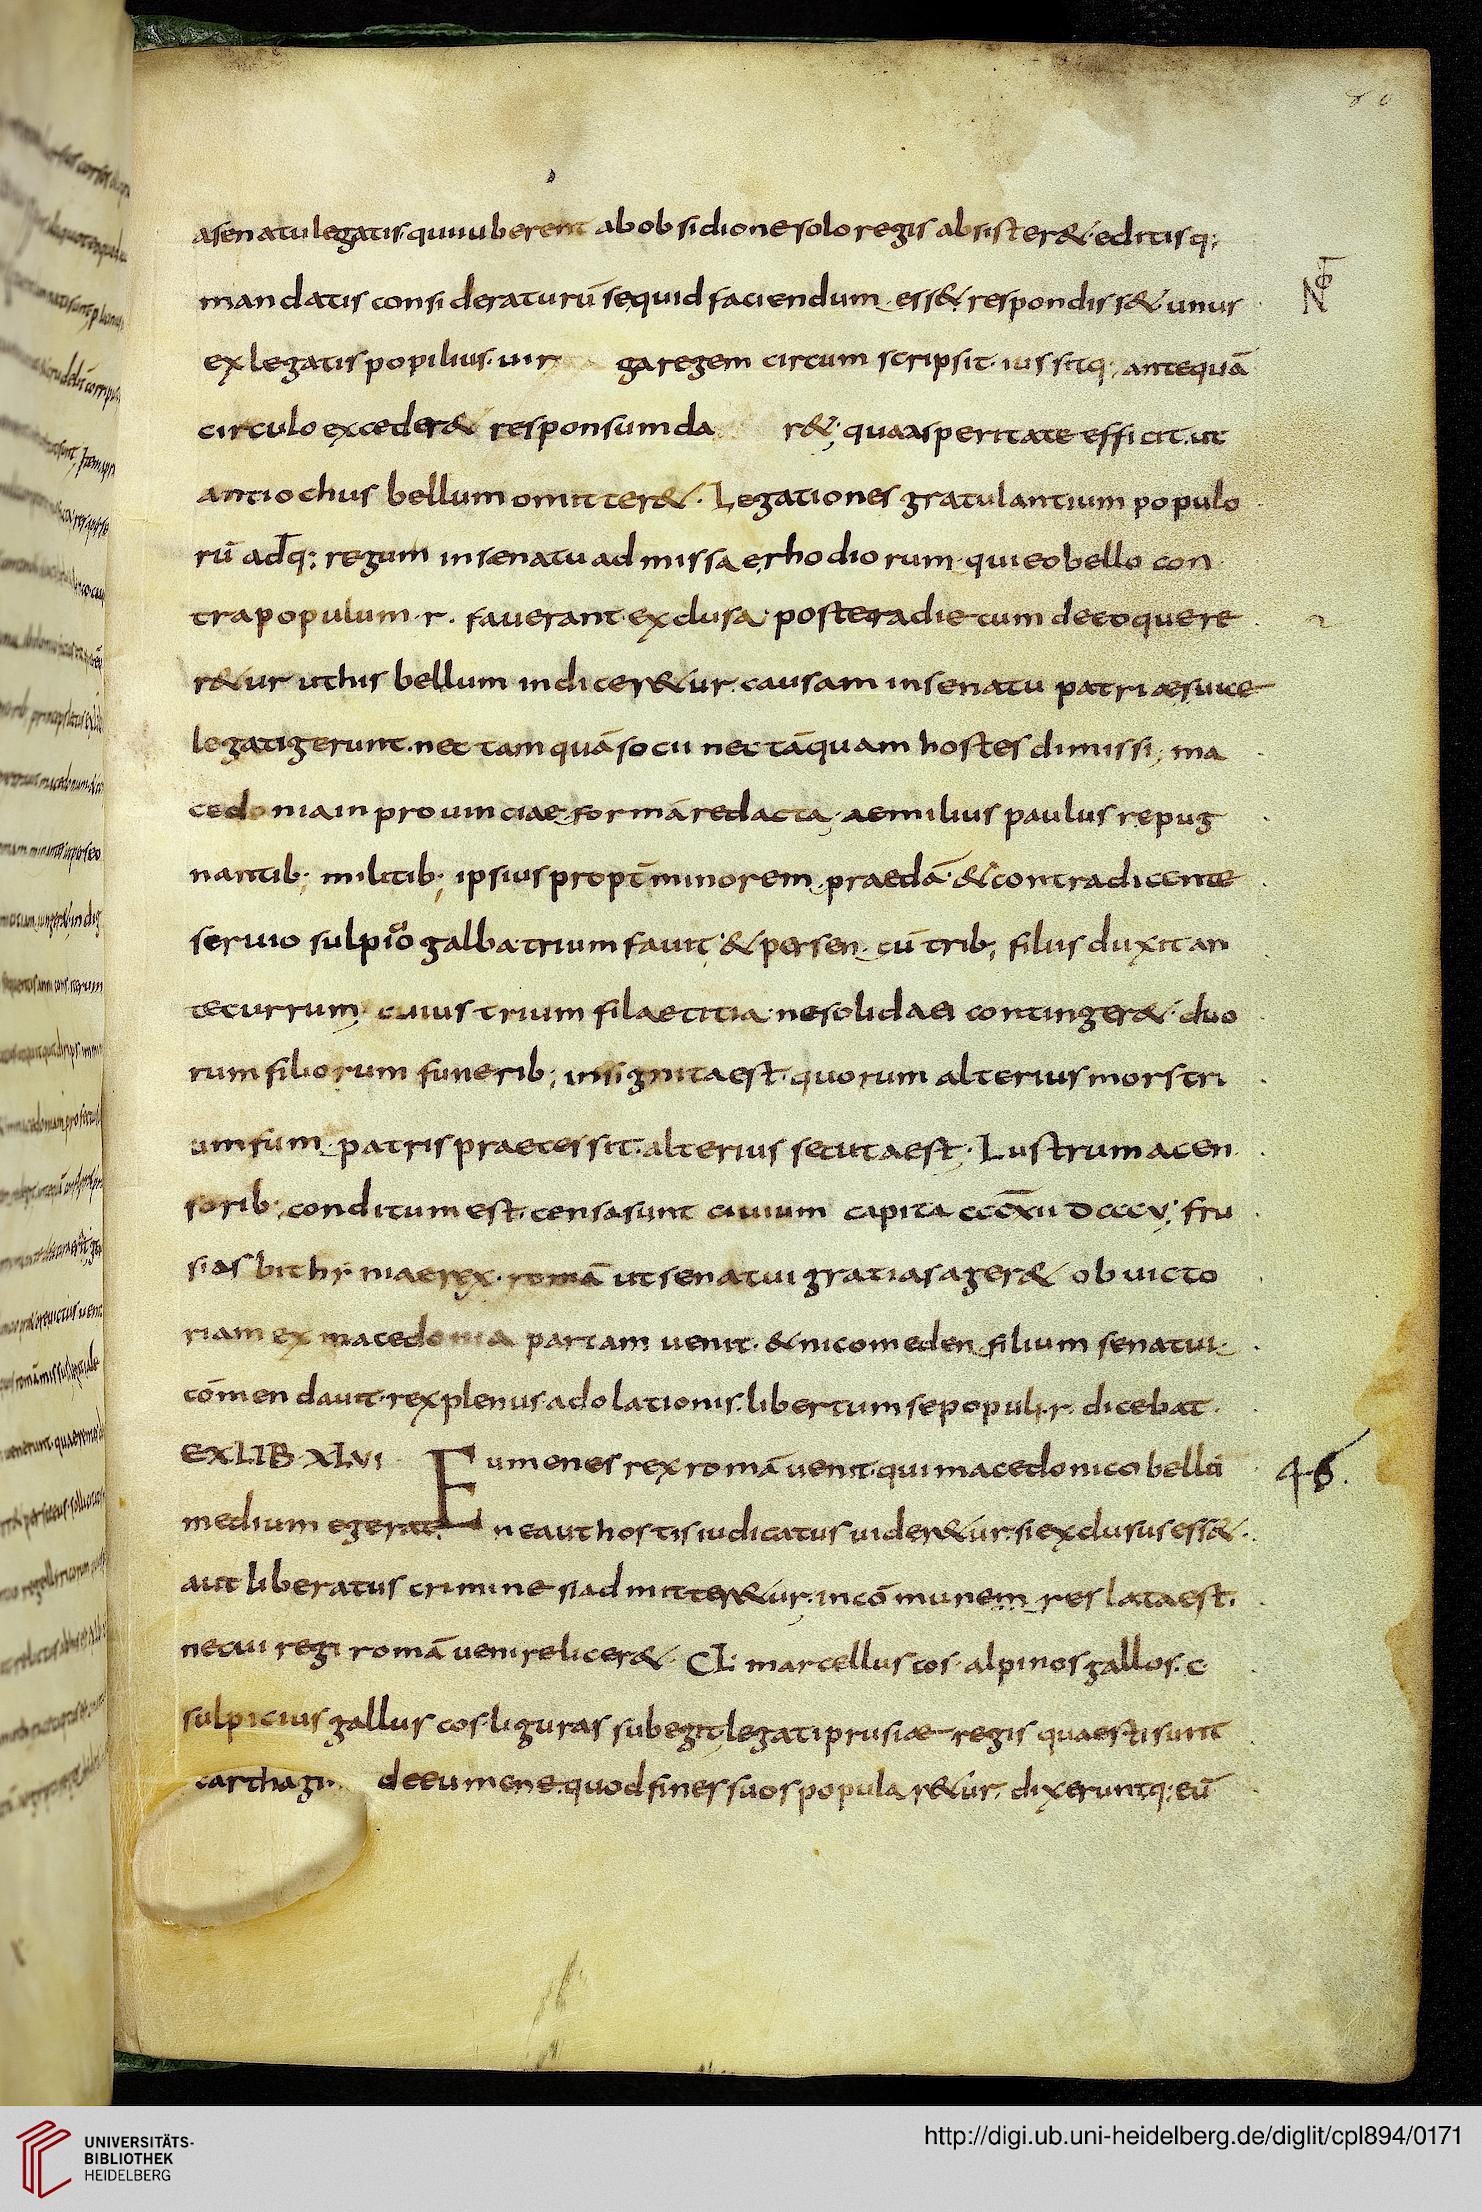 80
asenatu legatis qui iuberent ab obsidione solo regis absister&. editisq;
mandatis consideraturū se quid faciendum ess& respondiss& unus
ex legatis popilius. uir ga regem circum scripsit. iussitq; antequā
circulo exceder& responsum da r&; qua asperitate efficit. ut
antiochus bellum omitter&. Legationes gratulantium populo
rū adq; regum in senatu admissae rhodiorum qui eo bello con
tra populum r. fauerant exclusa; postera die cum de eo quere
r&ur ut his bellum indicer&ur. causam in senatu patriae suae
legati gerunt. nec tam quā socii nec tāquam hostes dimissi; ma
cedonia in prouinciae formā redacta. aemilius paulus repug
nantib; militib; ipsius propt̄ minorem praedā. & contradicente
seruio sulpicio galba trium fauit; & persen cū trib; filiis duxit an
te currum; cuius triumfi laetitia ne solida ei continger&. duo
rum filiorum funerib; insignita est. quorum alterius mors tri
umfum patris praecessit. alterius secuta est. Lustrum a cen
sorib; conditum est. censa sunt ciuium capita cccx̄ii dcccv; fru
sias bithyniae rex. romā ut senatui gratias ager& ob uicto
riam ex macedonia partam uenit. & nicomeden filium senatui.
cōmendauit. rex plenus adolationis. libertum se populi r. dicebat.
EX LIB XLVI Eumenes rex romā uenit. qui macedonico bello
medium egerat. ne aut hostis iudicatus uider&ur. si exclusus ess&.
aut liberatus crimine si admitter&ur. in cōmunem res lata est.
ne cui regi romā uenire licer&. CL. marcellus cos. alpinos gallos. c
sulpicius gallus cos. liguras subegit; legati prusiae regis quaesti sunt
carthagi de eumene. quod fines suos popular&ur. dixeruntq; eū
46.
UNIVERSITÄTS-
BIBLIOTHEK
HEIDELBERG
http://digi.ub.uni-heidelberg.de/diglit/cpl894/0171